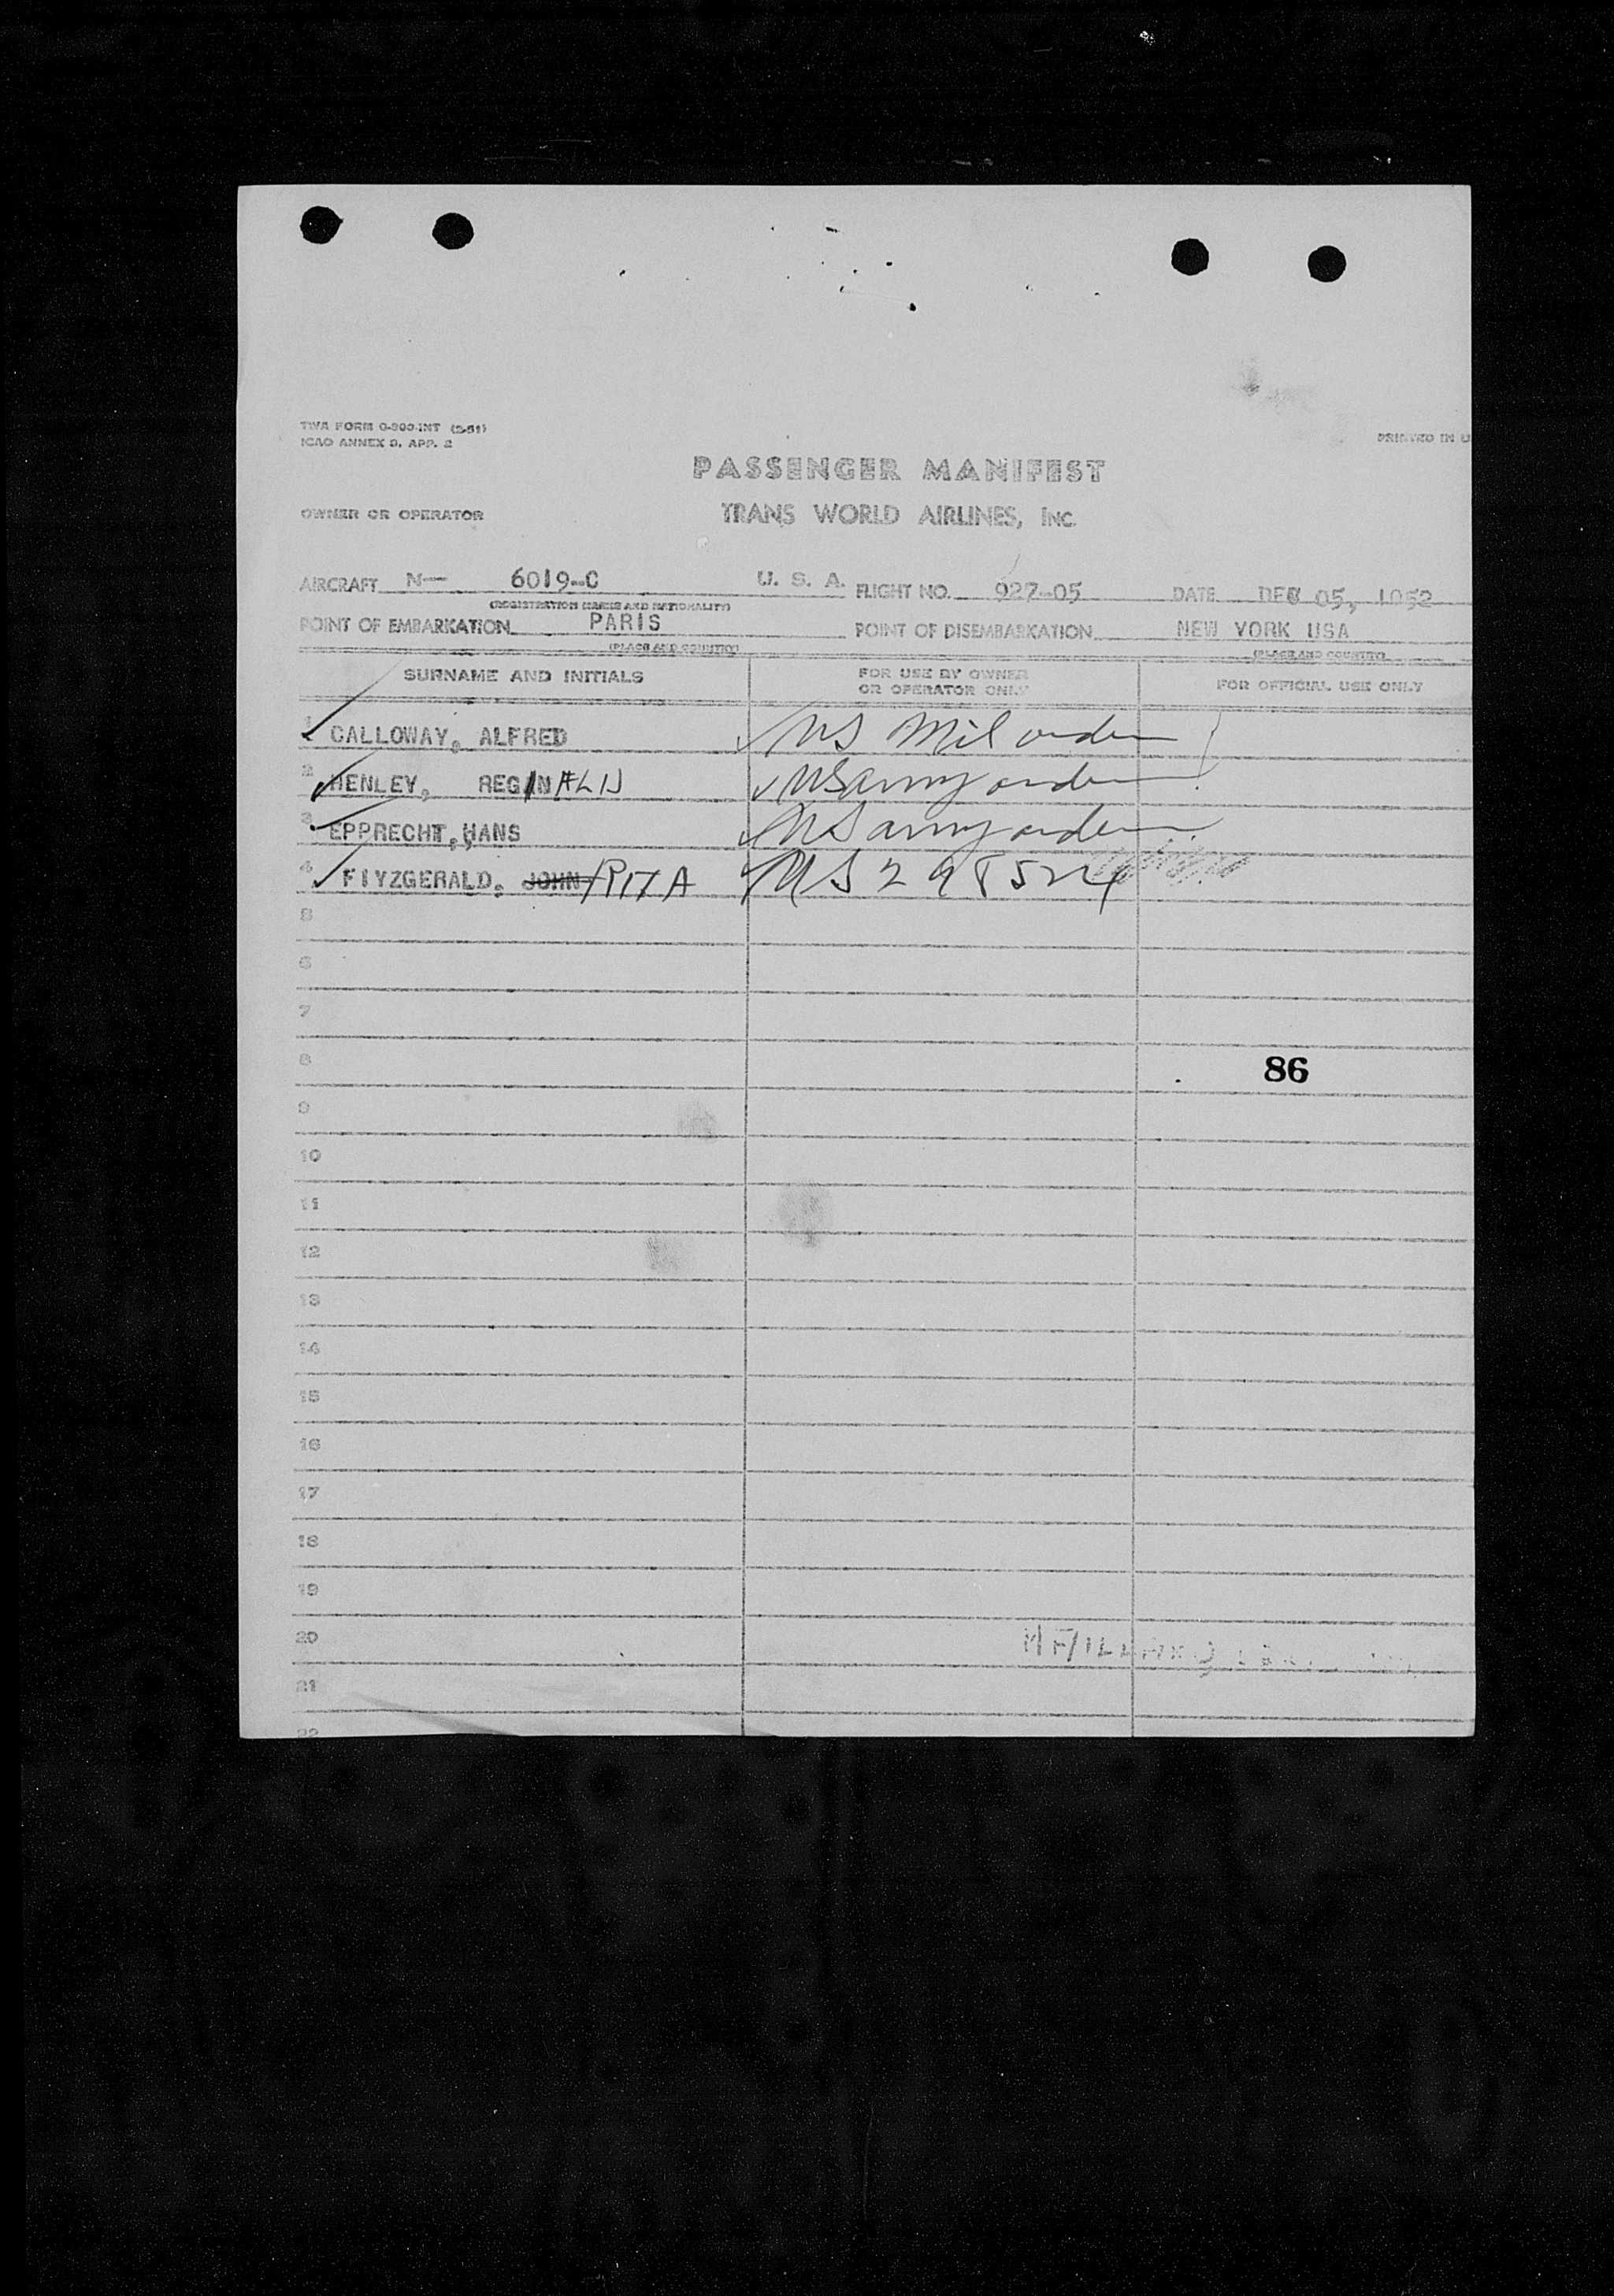 TWA FORM O-300-INT (2-51)
ICAO ANNEX 9, APP. 2
PRINTED IN U
PASSENGER MANIFEST
OWNER OR OPERATOR TRANS WORLD AIRLINES, INC.
AIRCRAFT N— 6019-C U. S. A. FLIGHT NO. 927-05 DATE DEC 05, 1952
(REGISTRATION MARKS AND NATIONALITY)
POINT OF EMBARKATION PARIS POINT OF DISEMBARKATION NEW YORK USA
(PLACE AND COUNTRY) (PLACE AND COUNTRY)
SURNAME AND INITIALS FOR USE BY OWNER OR OPERATOR ONLY FOR OFFICIAL USE ONLY
1 CALLOWAY, ALFRED US Mil orders
2 HENLEY, REGINALD US army orders
3 EPPRECHT, HANS US army orders
4 FIYZGERALD, JOHN RITA US 298524
5
6
7
8 86
9
10
11
12
13
14
15
16
17
18
19
20
21
22